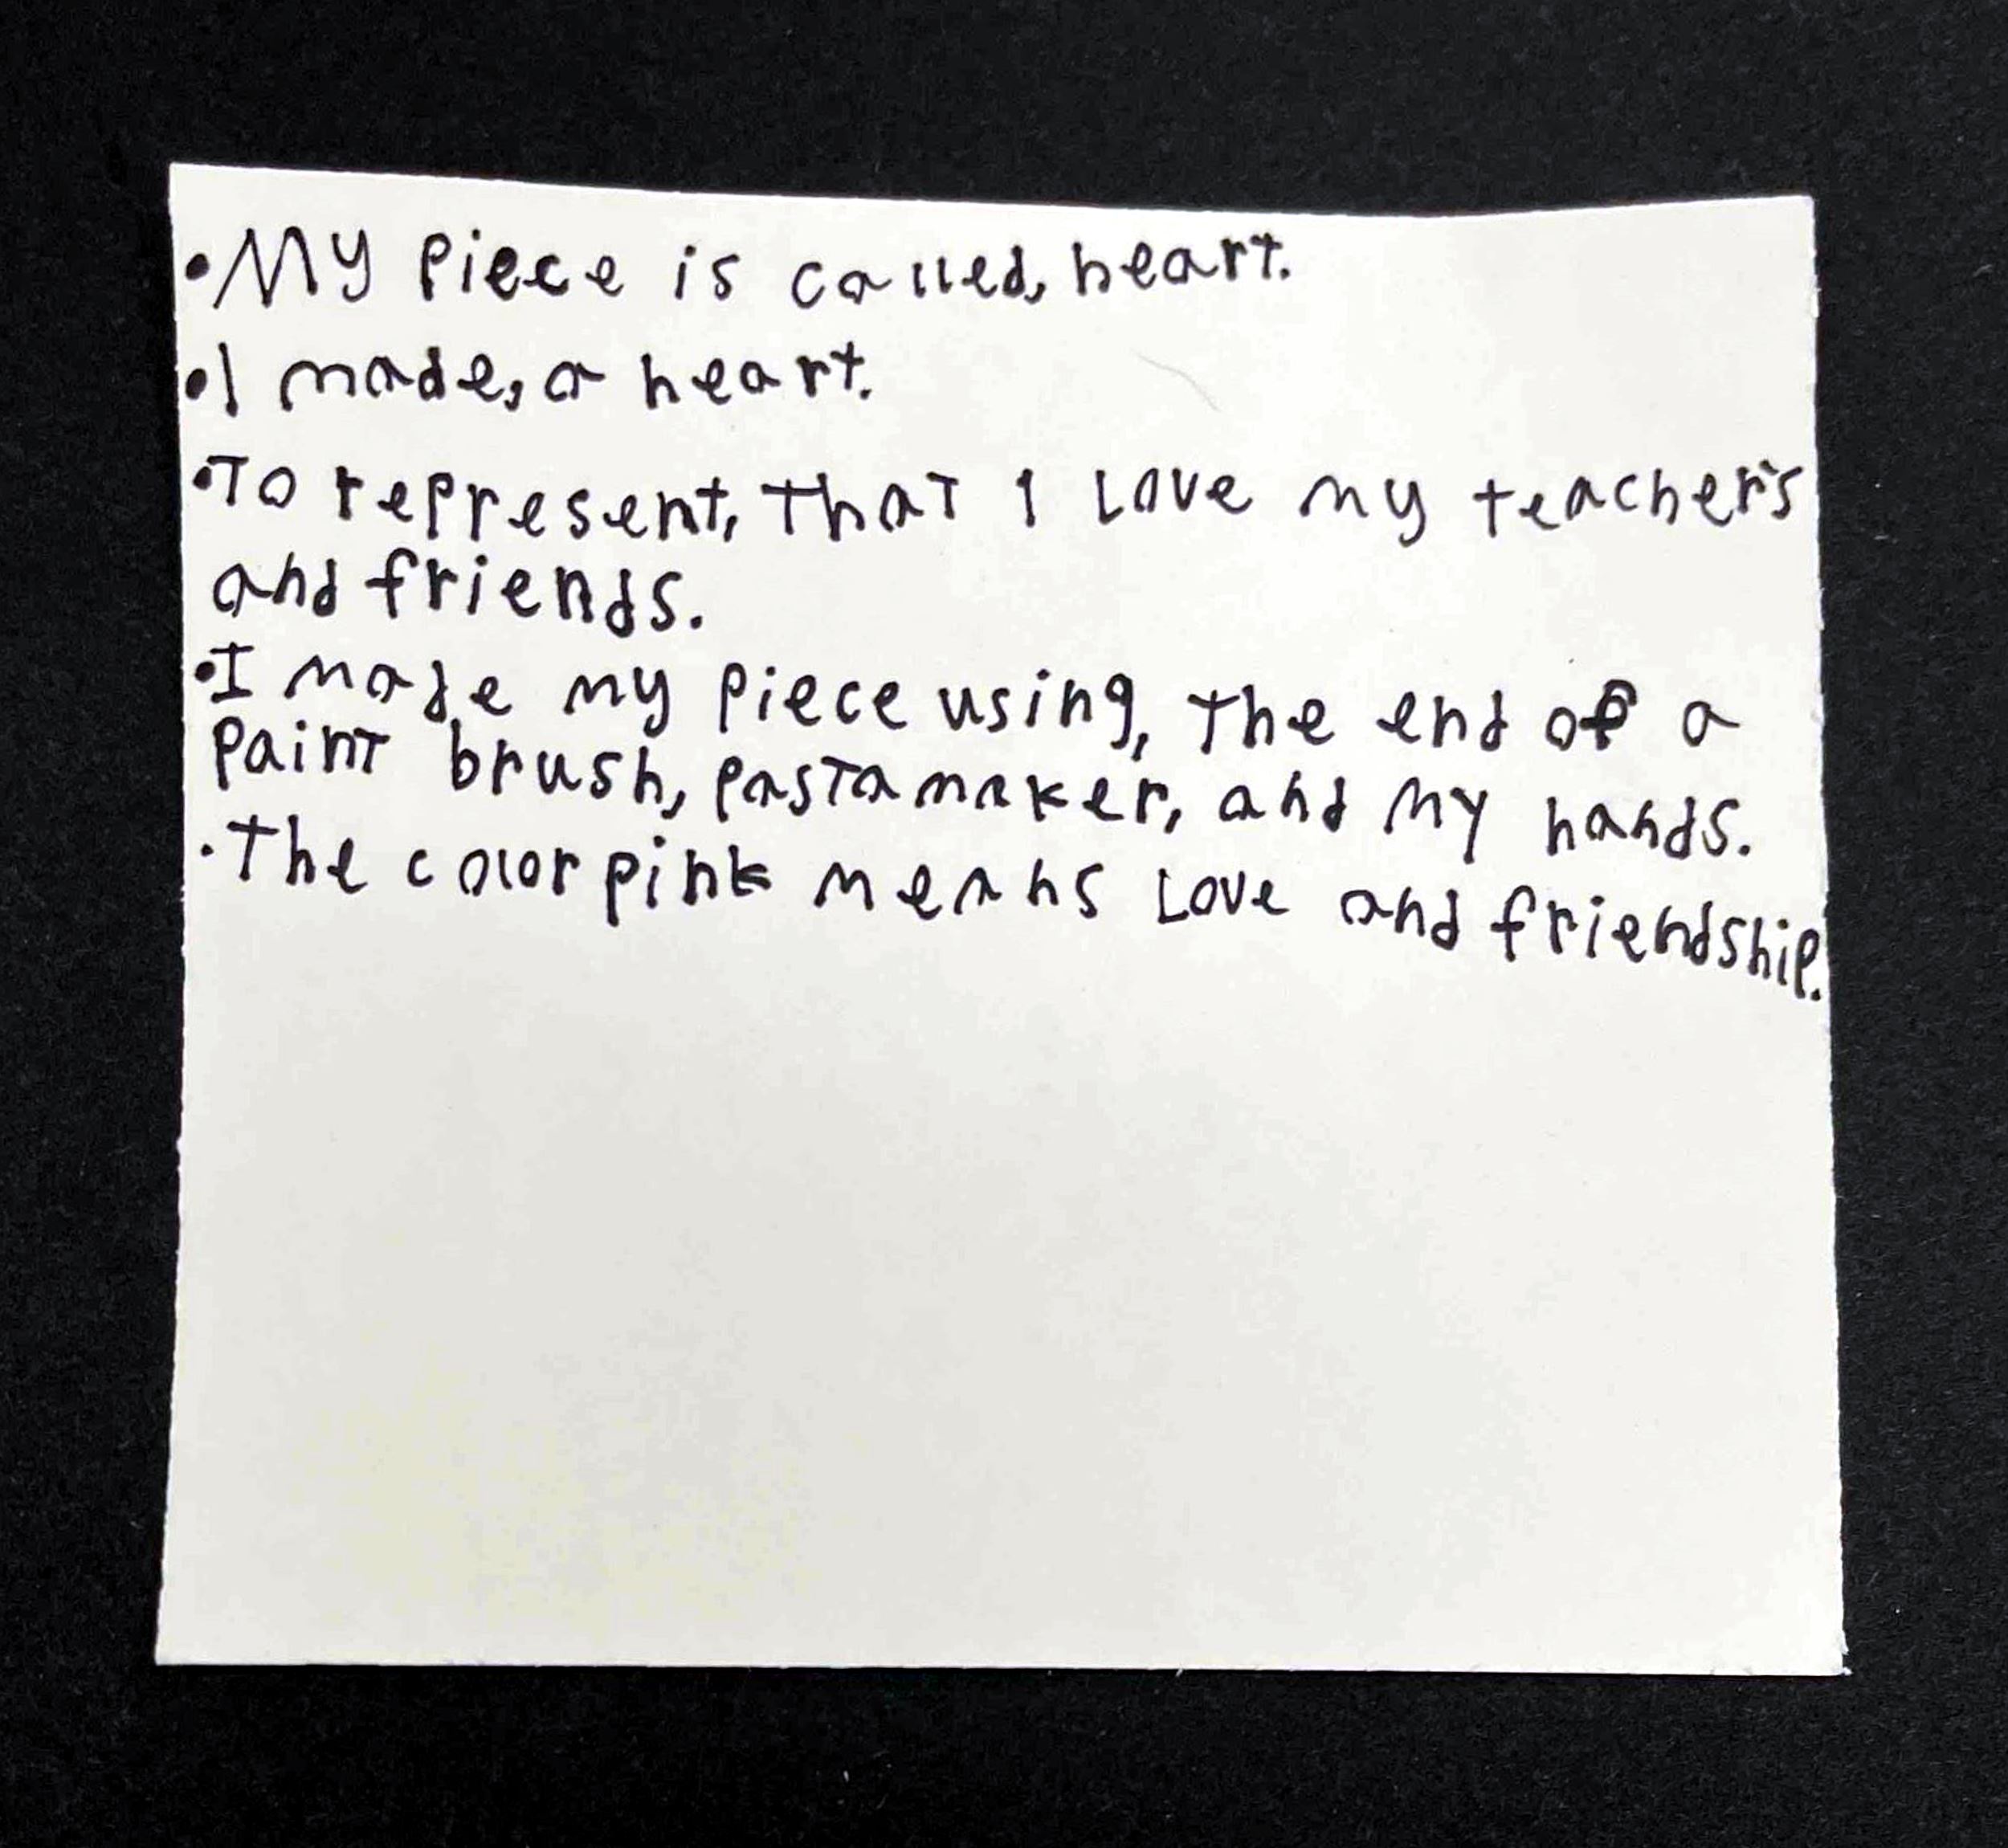 •My piece is called, heart.
•I made, a heart.
•To represent, that I Love my teacher's
and friends.
•I made my piece using, the end of a
paint brush, pastamaker, and my hands.
•The color pink means Love and friendship.